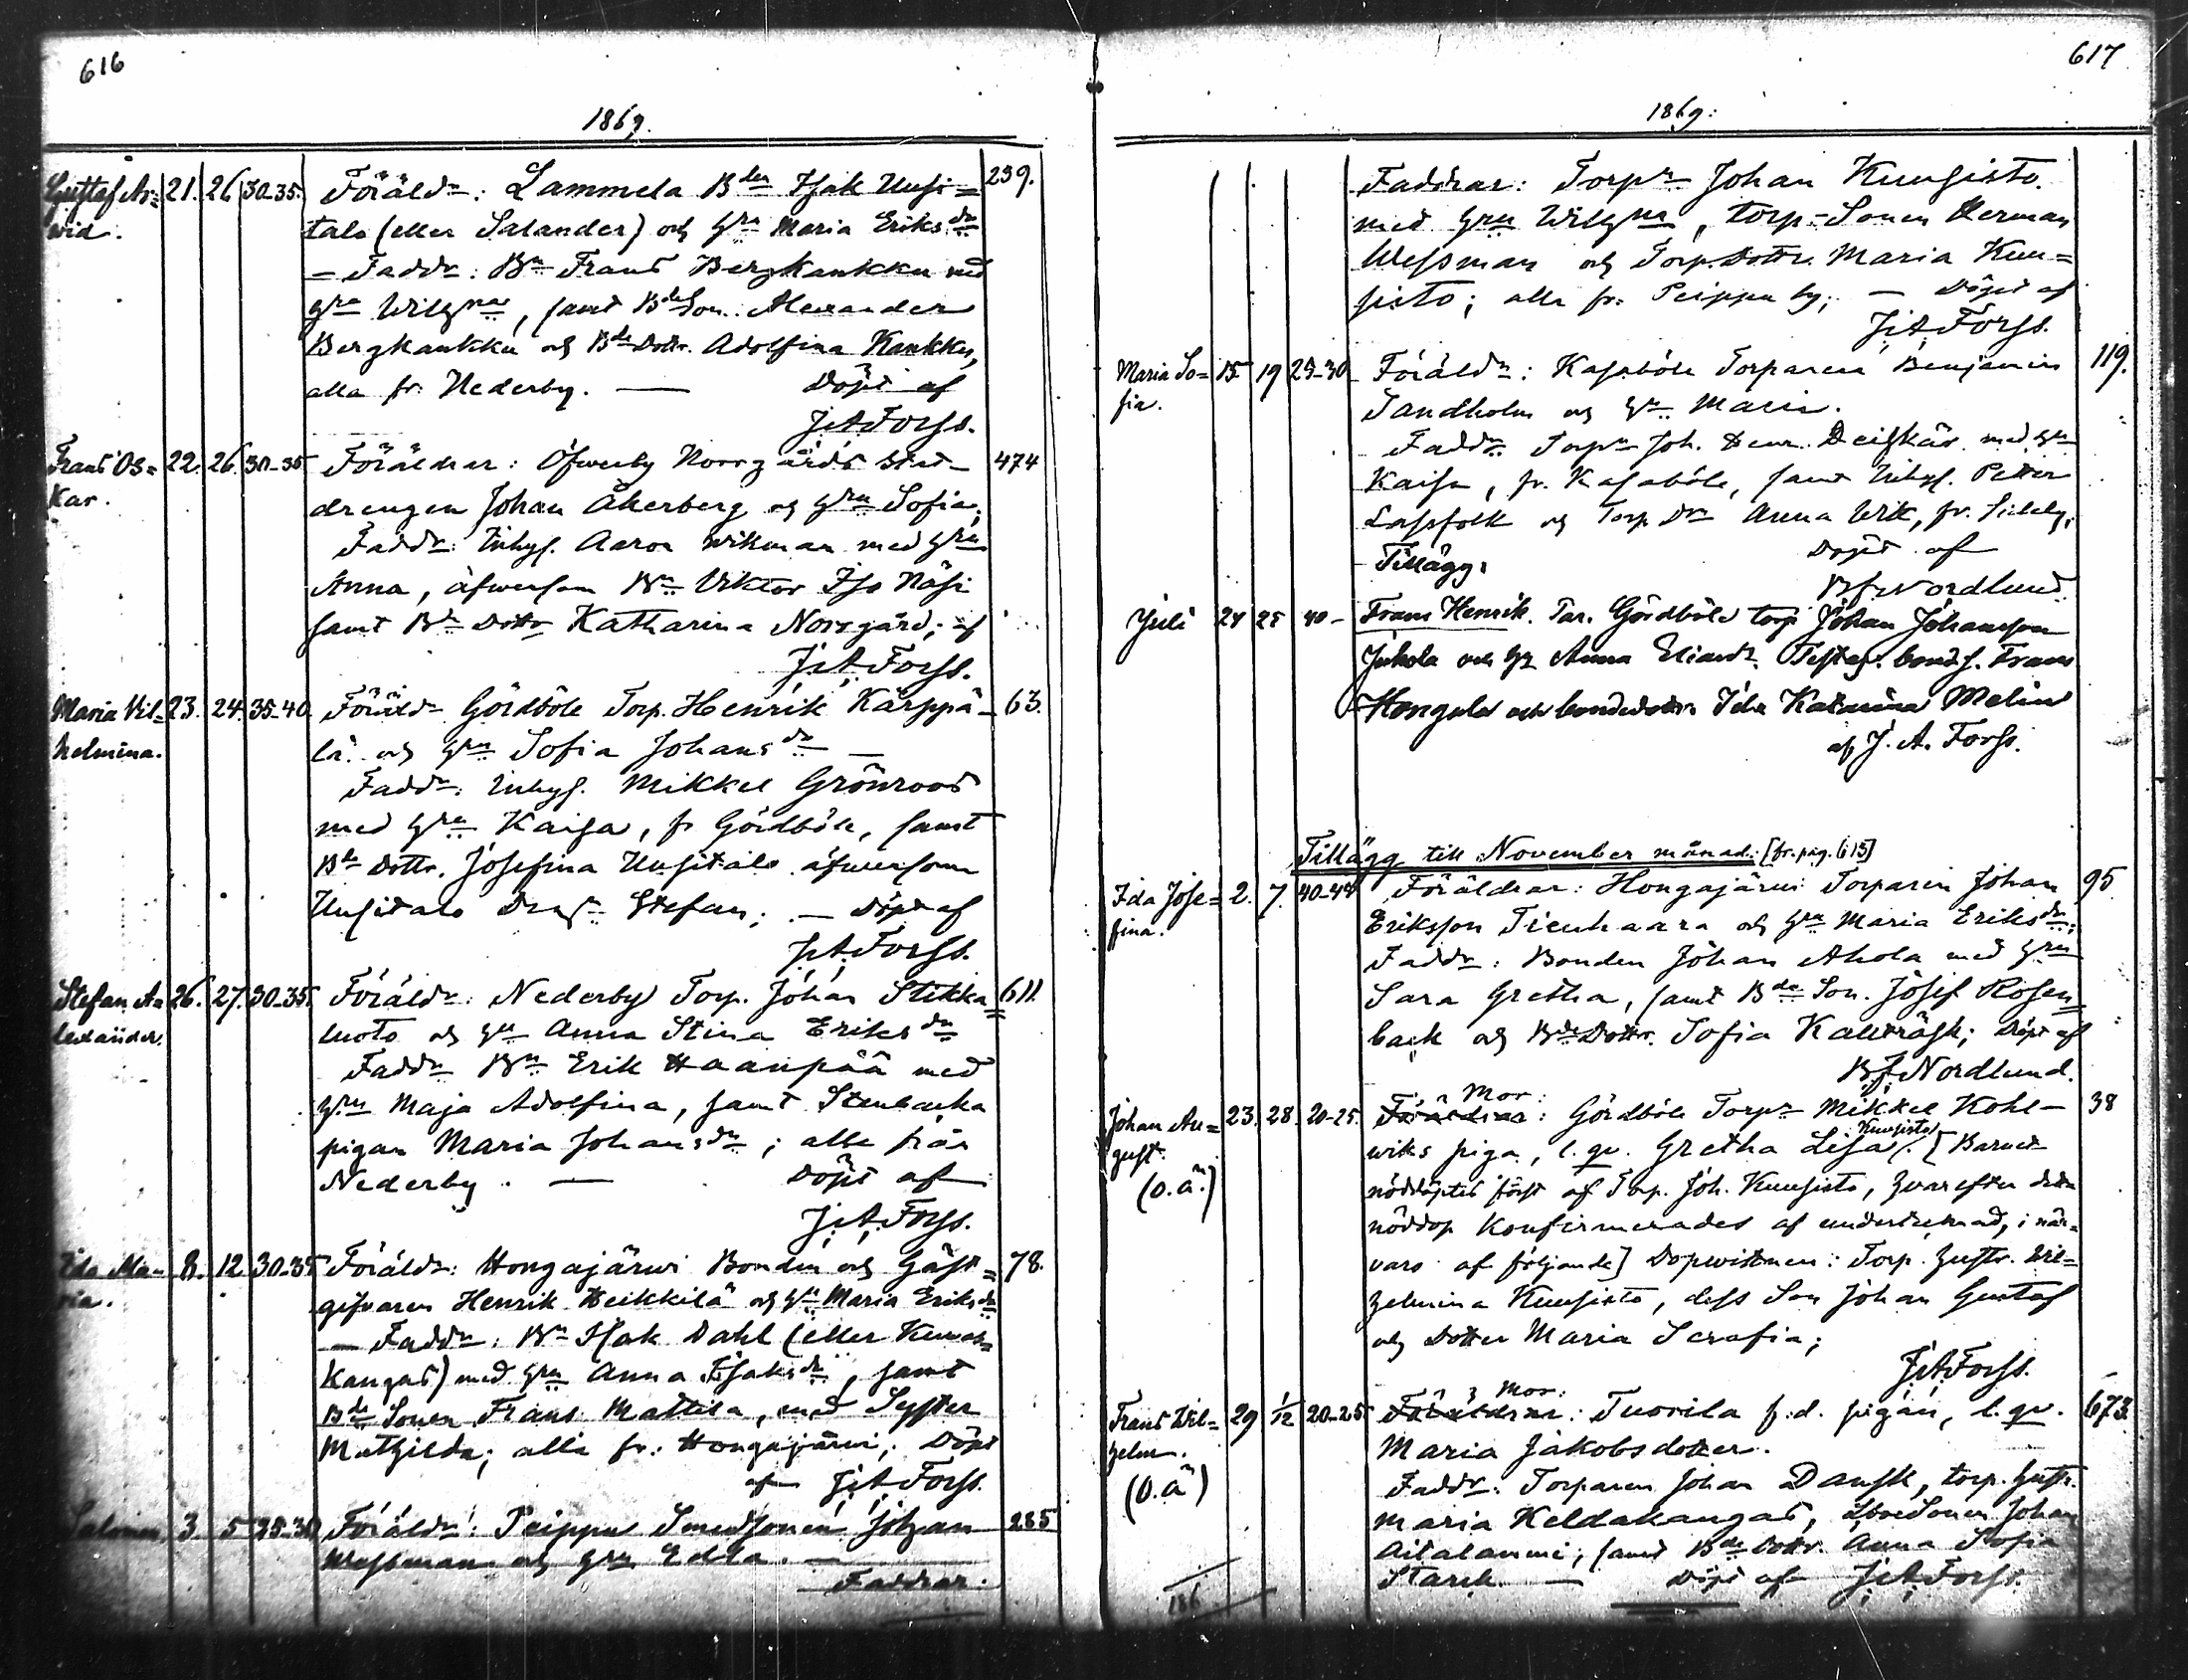 616
1869.
Gustaf Ar= 21. 26 30-35. Föräldr: Lammela Bden Isak Uusi= 239.
wid. talo (eller Salander) och hru Maria Eriksdr
— Faddr: Bn Frans Bergkankku med
hru Wilhna, samt Bde Son. Alexander
Bergkankku och Bde Dottr. Adolfina Kankku,
alla fr. Nederby. — Döpt af
J.A. Forss.
Frans Os= 22. 26. 30-35 Föräldrar: Öfwerby Norrgårds 474
kar. drengen Johan Åkerberg och hru Sofia.
Faddr: Inhys. Aaron Wikman med hru
Anna, äfwensom Bn Viktor Iso Näsi
samt Bde Dottr Katharina Norrgård; af
J.A. Forss.
Maria Vil= 23. 24. 35-40. Föräldr Gördböle Torp. Henrik Kärppä- 63.
helmina. lä. och hru Sofia Johansdr —
Faddr: Inhys. Mikkel Grönroos
med hru Kaisa, fr Gördböle, samt
Bde Dottr. Josefina Uusitalo äfwensom
Uusitalo Stefan; — Döpt af
J.A. Forss.
Stefan A= 26. 27. 30-35. Föräldr: Nederby Torp. Johan Stikka= 611.
lexander. luoto och hru Anna Stina Eriksdr
Faddr Bn Erik Haanpää med
hru Maja Adolfina, samt Stenbacka
pigan Maria Johansdr; alla från
Nederby. — Döpt af
J.A. Forss.
Ida Ma- 8. 12. 30-35 Föräldr: Hongajärwi Bonden och Gäst= 78.
ria. gifvaren Henrik Heikkilä och hru Maria Eriksdr
— Faddr: Bn Isak Dahl (eller
Kangas) med hru Anna Isaksdr, samt
Bde Sonen Frans Mattila, med Syster
Mathilda; alla fr. Hongajärwi; Döpt
af J.A. Forss.
Salomon 3. 5 25-30 Föräldr: Peippu Smedsonen Johan 285
Wessman och hru Edla. —
Faddrar.
617
1869.
Faddrar: Torpr Johan Kuusisto
med hru Wilhna, torp.-Sonen Herman
Wessman och Torp. Dottr. Maria Kuu=
sisto; alla fr. Peippu by; — Döpt af
J.A. Forss.
Maria So= 15 19 25-30 Föräldr: Kasaböle Torparen Benjamin 119.
fia. Sandholm och hru Maria.
Faddr Torpr Joh. Henr. med hru
Kaisa, fr. Kasaböle, samt Inhys. Petter
Lassfolk och Torp Dtr Anna Wik, fr. Sideby.
Tillägg. Döpt af
B.J. Nordlund.
Juli 24 25 40- Frans Henrik. Par. Gördböle torp Johan Johansson
Jukola och hu Anna Testes. bonds. Frans
Hongola och bondedottr Ida Katarina Melin
af J. A. Forss.
Tillägg till November månad: [fr. pag. 615]
Ida Jose= 2. 7. 40-44 Föräldrar: Hongajärwi Torparen Johan 95
fina. Eriksson Tienhaara och hru Maria Eriksdr;
Faddr: Bonden Johan Ahola med hru
Sara Gretha, samt Bde Son. Josef Rosen=
back och Bde Dottr. Sofia Kallträsk; Döpt af
B.J. Nordlund.
Mor:
Johan Au= 23. 28. 20-25. Föräldrar: Gördböle Torpr Mikkel Kohl- 38
gust. wiks piga, l. qv. Gretha Lisa Kuusisto. [Barnet
(o.ä.) nöddöptes först af Torp. Joh. Kuusisto, hvarefter detta
nöddop konfirmerades af undertecknad, i när=
varo af följande] Dopwittnen: Torp. hustr. Wil=
helmina Kuusisto, dess Son Johan Gustaf
och Dotter Maria Serafia;
J.A. Forss.
Mor:
Frans Wil= 29 1/12 20-25 Föräldrar: Tuorila f.d. pigan, l. qv. 673
helm. Maria Jakobsdotter.
(o.ä) Faddr. Torparen Johan Dansk, torp. hustr.
Maria Keldakangas, Sonen Johan
Aitalanmi; samt Bde Dottr. Anna Sofia
Starck. — Döpt af J.A. Forss.
186